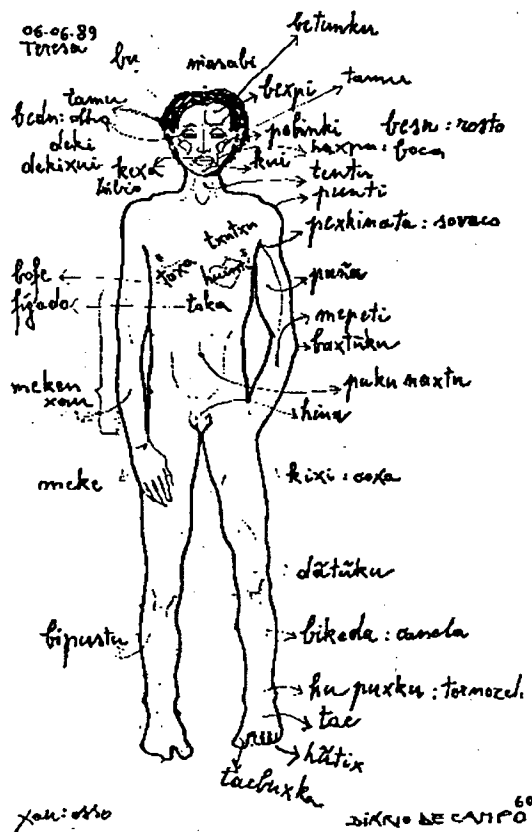 06-06-89
Teresa
bu
masabi
betunku
bexpi
tamu
tamu
bedu: olho
deki
dekixui
kexa
lábio
pebinki
besu: rosto
haxpa: boca
kui
tentu
punti
pexkinata: sovaco
txutxu
taxa
huinti
bofe
fígado
taka
puña
mepeti
baxtũku
meken
xau
puku naxtu
hina
meke
kixi: coxa
dãtũku
bipustu
bikeda: canela
hu puxku: tornozelo
tae
hũtix
taebuxka
xau: osso
DIÁRIO DE CAMPO 60